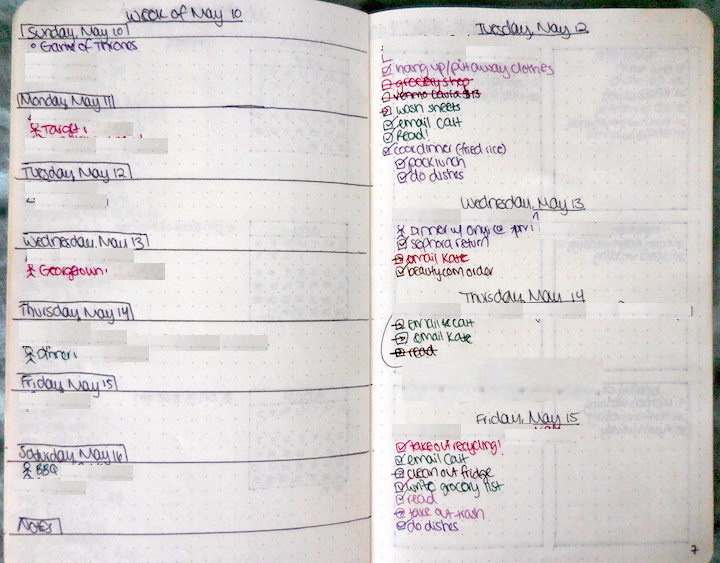 Week of May 10
Sunday, May 10
Game of Thrones
Monday, May 11
Target
Tuesday, May 12
Wednesday, May 13
Georgetown
Thursday, May 14
dinner
Friday, May 15
Saturday, May 16
BBQ
Notes
Tuesday, May 12
hang up/put away clothes
grocery shop
venmo Laura $13
wash sheets
email Cait
Read!
cook dinner (fried rice)
pack lunch
do dishes
Wednesday, May 13
Dinner w/
sephora return
email Kate
beauty.com order
Thursday, May 14
email Cait
email Kate
read
Friday, May 15
take out recycling!
email Cait
clean out fridge
write grocery list
read
take out trash
do dishes
7